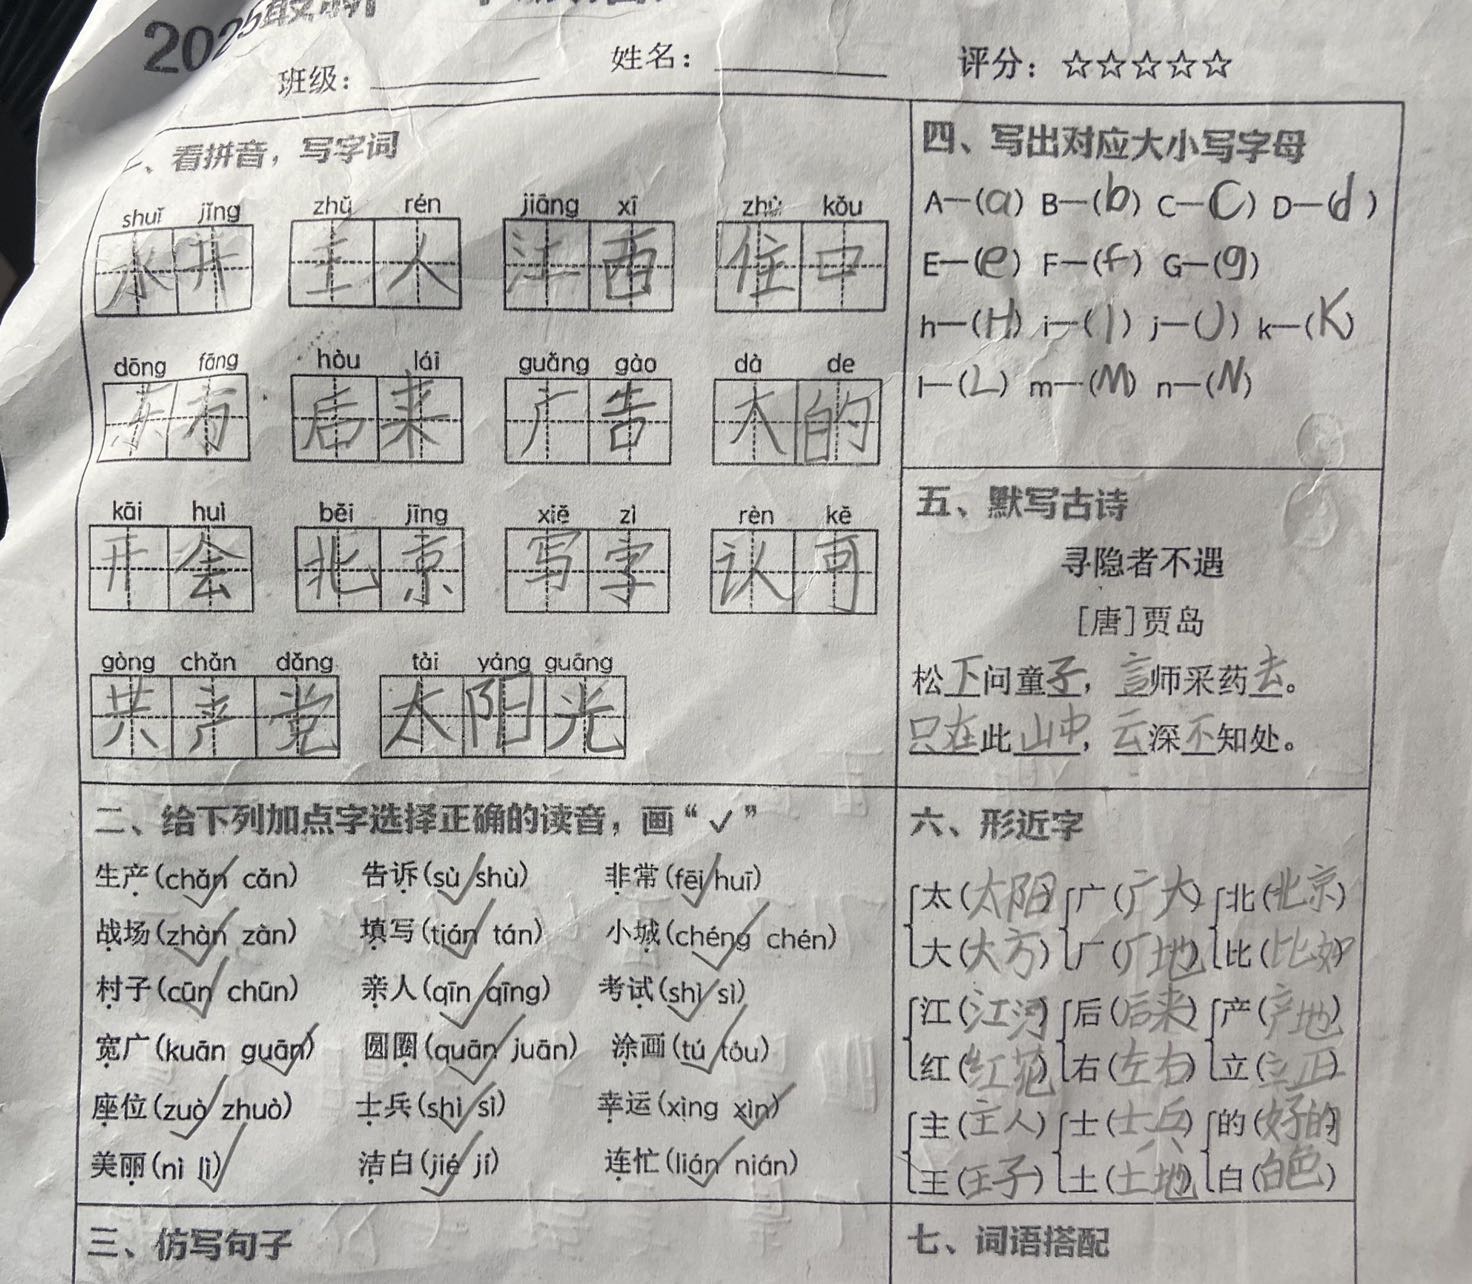 2025
班级：
姓名：
评分：☆☆☆☆☆
一、看拼音，写字词
shuǐ jǐng zhǔ rén jiāng xī zhù kǒu
水井 主人 江西 住口
dōng fāng hòu lái guǎng gào dà de
东方 后来 广告 大的
kāi huì běi jīng xiě zì rèn kě
开会 北京 写字 认可
gòng chǎn dǎng tài yáng guāng
共产党 太阳光
二、给下列加点字选择正确的读音，画“✓”
生产(chǎn✓ cǎn) 告诉(sù✓ shù) 非常(fēi✓ huī)
战场(zhàn✓ zàn) 填写(tián✓ tán) 小城(chéng✓ chén)
村子(cūn✓ chūn) 亲人(qīn✓ qīng) 考试(shì✓ sì)
宽广(kuān guān✓) 圆圈(quān✓ juān) 涂画(tú✓ tóu)
座位(zuò✓ zhuò) 士兵(shì✓ sì) 幸运(xìng xìn✓)
美丽(nì lì✓) 洁白(jié✓ jí) 连忙(lián✓ nián)
三、仿写句子
四、写出对应大小写字母
A—(a) B—(b) C—(C) D—(d)
E—(e) F—(f) G—(g)
h—(H) i—(I) j—(J) k—(K)
l—(L) m—(M) n—(N)
五、默写古诗
寻隐者不遇
[唐]贾岛
松下问童子，言师采药去。
只在此山中，云深不知处。
六、形近字
太(太阳) 广(广大) 北(北京)
大(大方) 厂(厂地) 比(比如)
江(江河) 后(后来) 产(产地)
红(红花) 右(左右) 立(立正)
主(主人) 士(士兵) 的(好的)
王(王子) 土(土地) 白(白色)
七、词语搭配